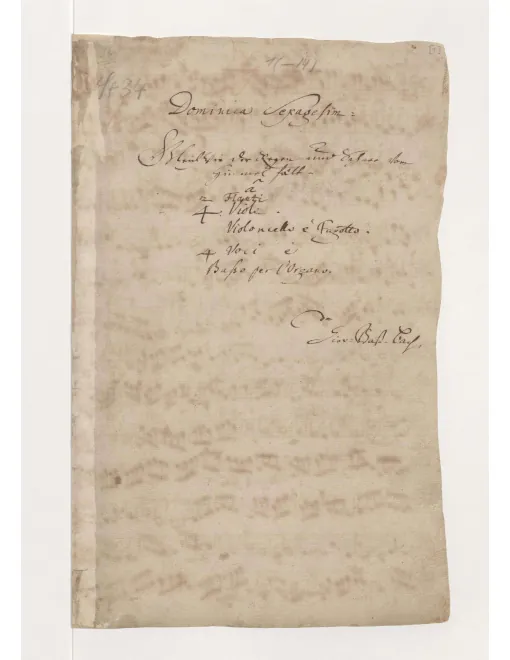 1(–14)
4+34
Dominica Sexagesim:
Gleich wie der Regen und Schnee vom
Himmel fält.
â
2 Flauti
4. Viole.
Violoncello è Fagotto.
4 Voci è
Basso per l'Organo.
Da
Giov: Bast: Bach.